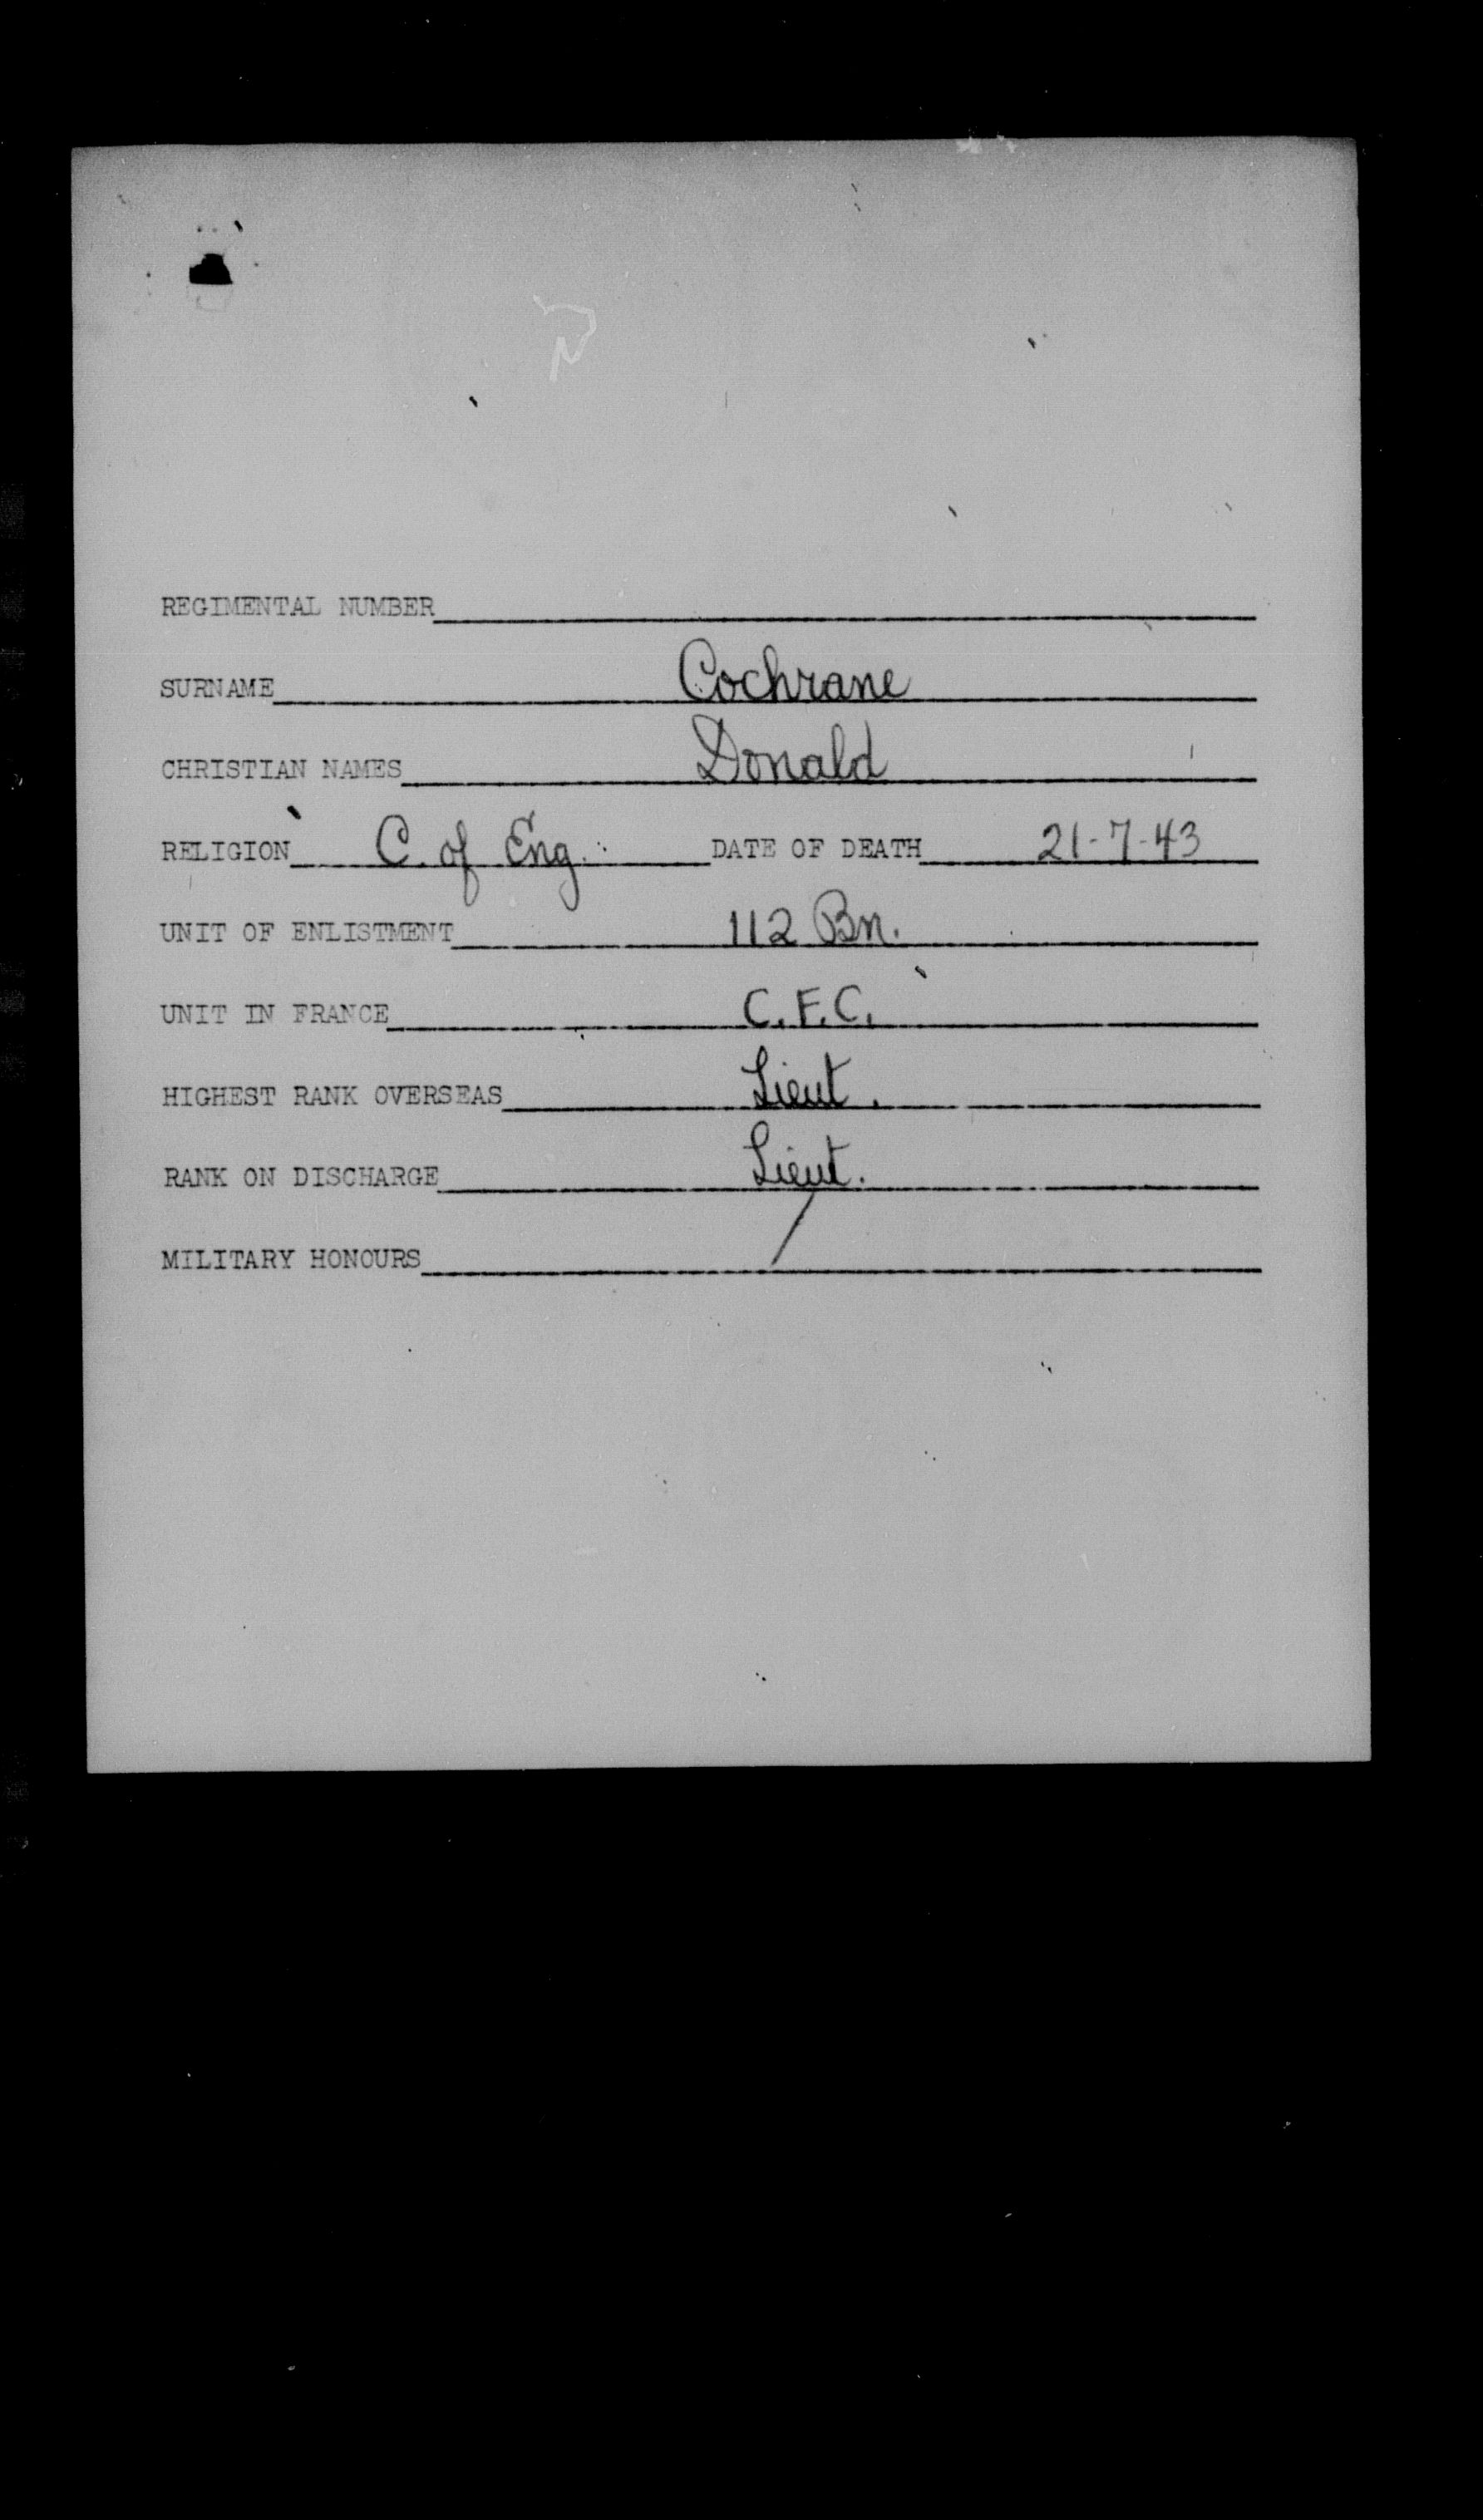 REGIMENTAL NUMBER
SURNAME Cochrane
CHRISTIAN NAMES Donald
RELIGION C. of Eng. DATE OF DEATH 21-7-43
UNIT OF ENLISTMENT 112 Bn.
UNIT IN FRANCE C.F.C.
HIGHEST RANK OVERSEAS Lieut.
RANK ON DISCHARGE Lieut.
MILITARY HONOURS /